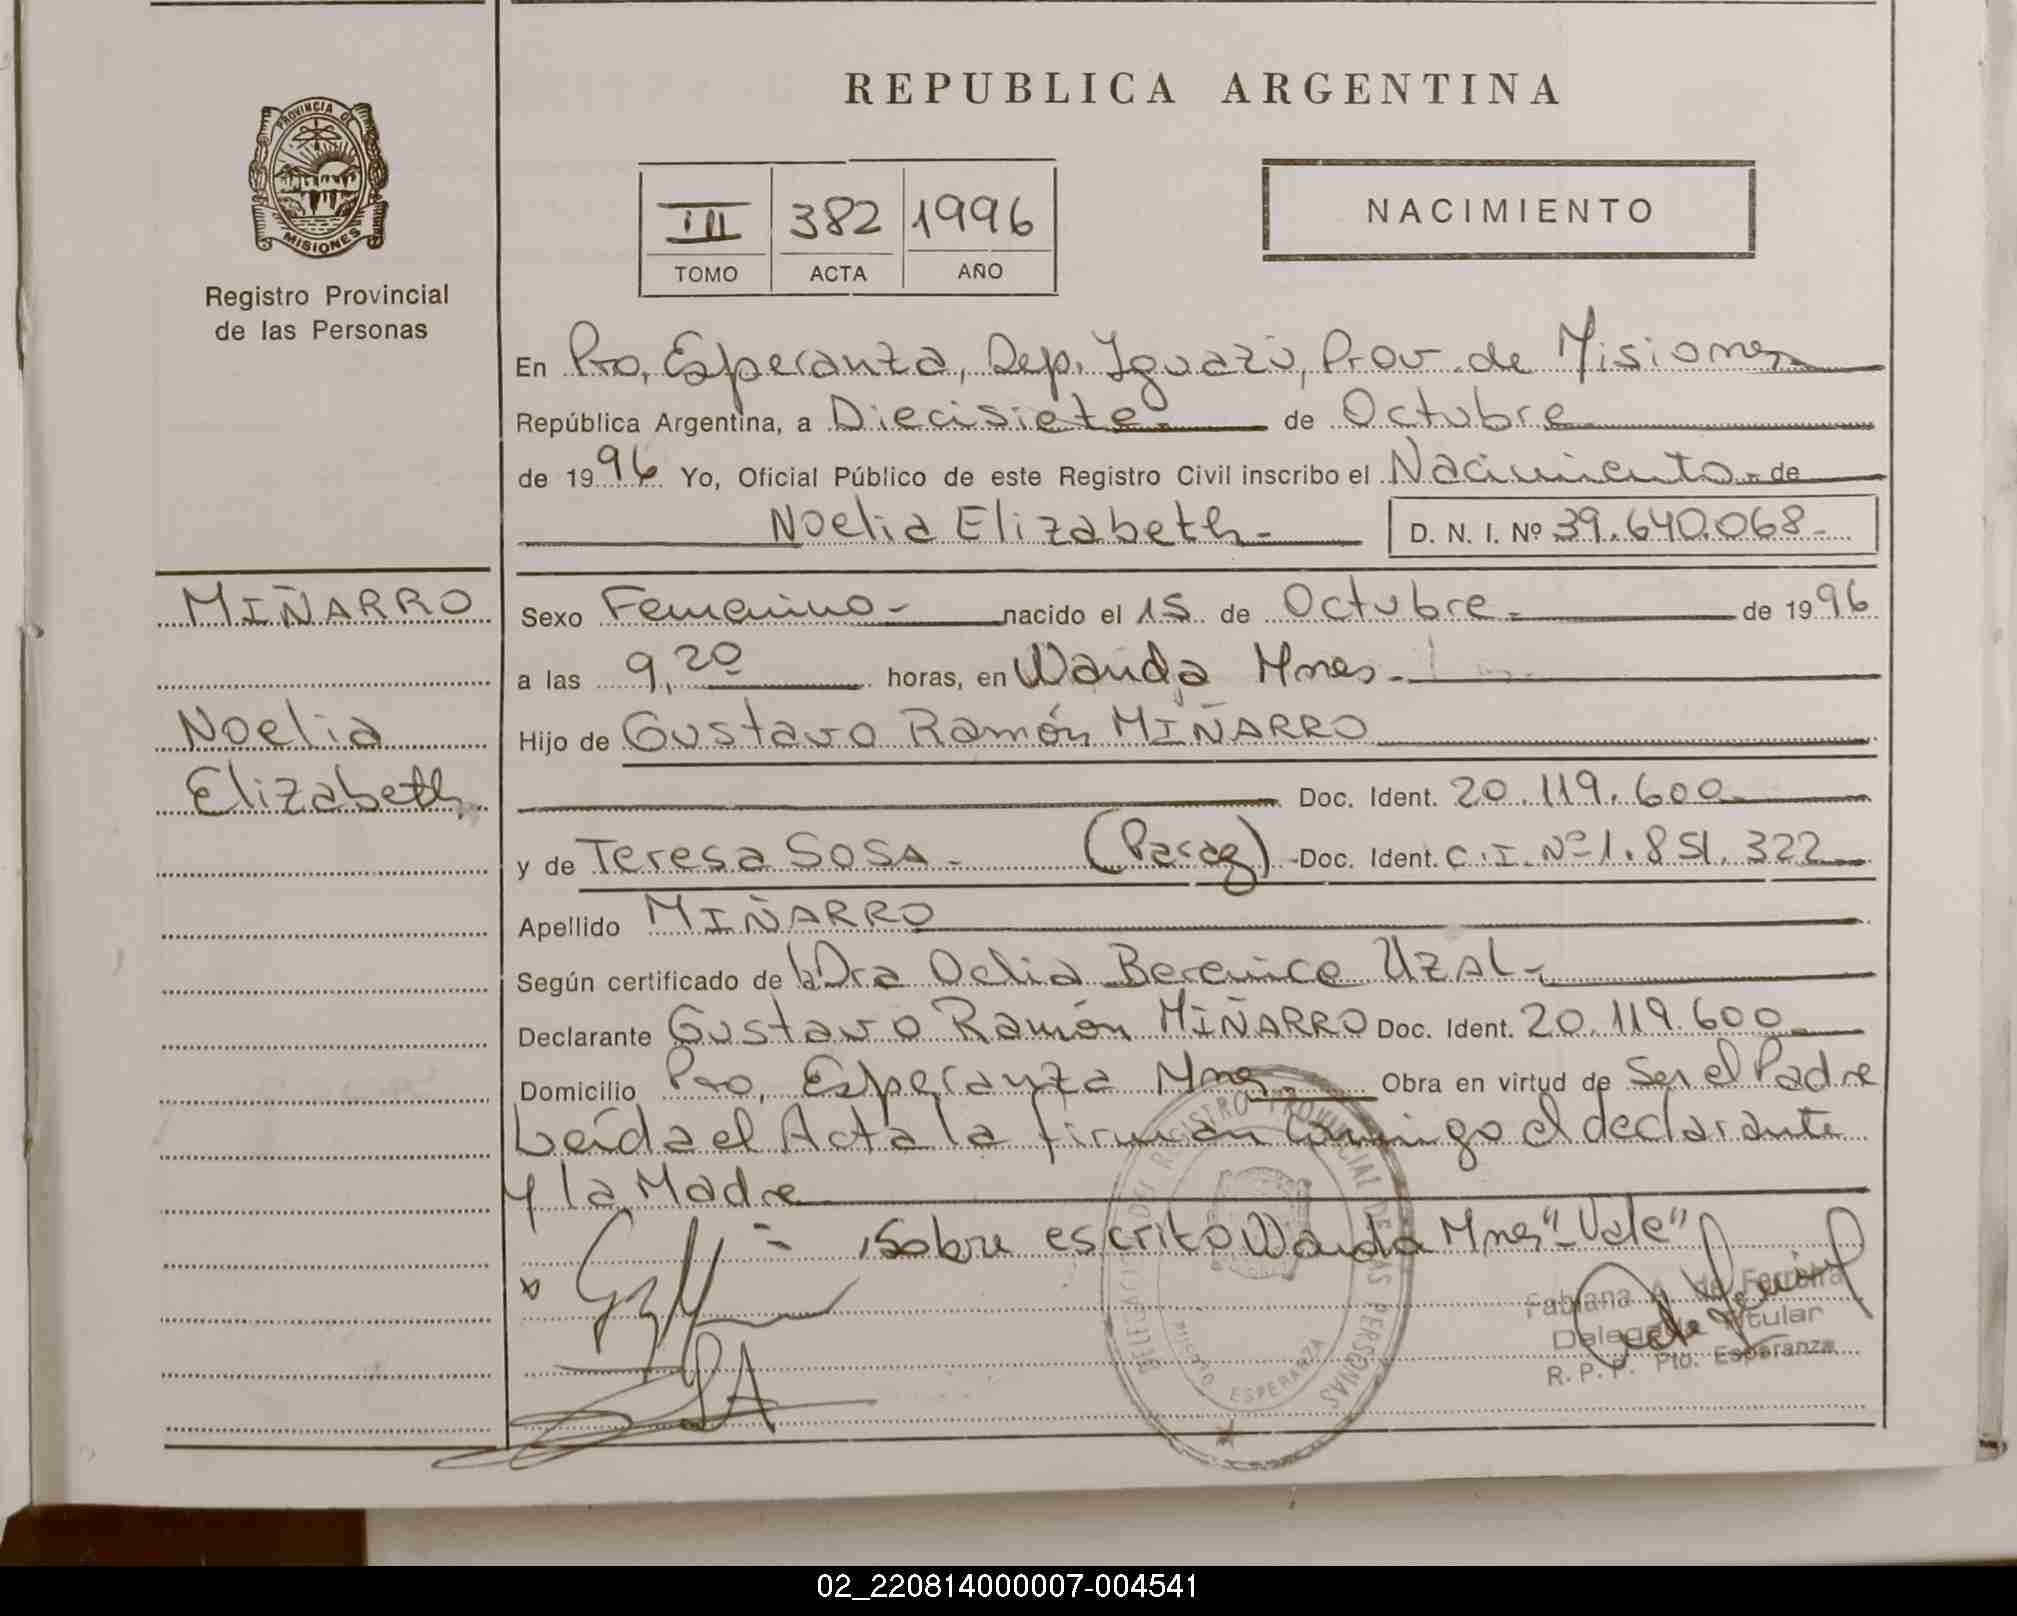 REPUBLICA ARGENTINA
PROVINCIA DE
MISIONES
Registro Provincial
de las Personas
III 382 1996
TOMO ACTA AÑO
NACIMIENTO
En Pto, Esperanza, Dep. Iguazú, Prov. de Misiones
República Argentina, a Diecisiete de Octubre
de 1996 Yo, Oficial Público de este Registro Civil inscribo el Nacimiento - de
Noelia Elizabeth - D. N. I. Nº 39.640.068 -
MIÑARRO
Noelia
Elizabeth
Sexo Femenino - nacido el 15 de Octubre - de 1996
a las 9,20 horas, en Wanda Mnes -
Hijo de Gustavo Ramón MIÑARRO
Doc. Ident. 20.119.600
y de Teresa SOSA - (Parag) - Doc. Ident. C.I. Nº 1.851.322
Apellido MIÑARRO
Según certificado de la Dra Berenice UZAL -
Declarante Gustavo Ramón MIÑARRO Doc. Ident. 20.119.600
Domicilio Pto, Esperanza Mnes. Obra en virtud de Ser el Padre
Leída el Acta la firman conmigo el declarante
y la Madre
= Sobre escrito Wanda Mnes "Vale"
REGISTRO PROVINCIAL DE LAS PERSONAS
PUERTO ESPERANZA
Fabiana A. de Ferreira
Delegada Titular
R. P. P. Pto. Esperanza
02_220814000007-004541